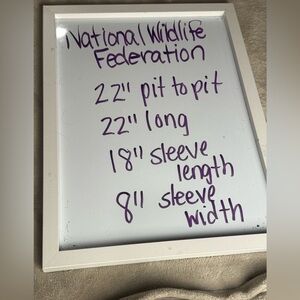 National Wildlife
Federation
22" pit to pit
22" long
18" sleeve
length
8" sleeve
width